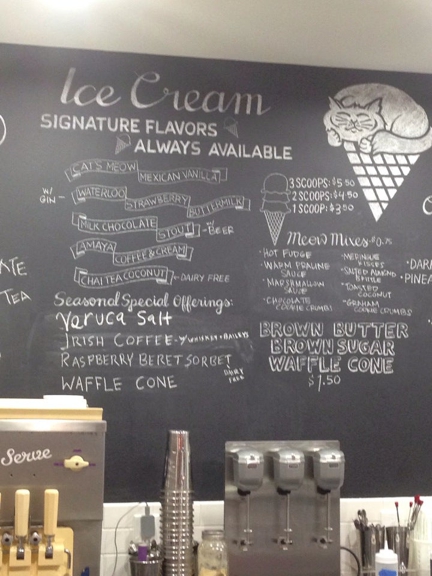 Ice Cream
SIGNATURE FLAVORS
ALWAYS AVAILABLE
CAT'S MEOW
MEXICAN VANILLA
W/
GIN
WATERLOO
STRAWBERRY
BUTTERMILK
MILK CHOCOLATE
STOUT
BEER
AMAYA
COFFEE & CREAM
CHAI TEA COCONUT
DAIRY FREE
Seasonal Special Offerings:
Veruca Salt
IRISH COFFEE - w/ WHISKEY + BAILEYS
RASPBERRY BERET SORBET
DAIRY
FREE
WAFFLE CONE
3 SCOOPS: $5.50
2 SCOOPS: $4.50
1 SCOOP: $3.50
Meow Mixes: $0.75
• HOT FUDGE
• WARM PRALINE
SAUCE
• MARSHMALLOW
SAUCE
• CHOCOLATE
COOKIE CRUMBS
• MERINGUE
KISSES
• SALTED ALMOND
BRITTLE
• TOASTED
COCONUT
• GRAHAM
COOKIE CRUMBS
BROWN BUTTER
BROWN SUGAR
WAFFLE CONE
$1.50
ATE
TEA
• DAR
• PINEA
Serve